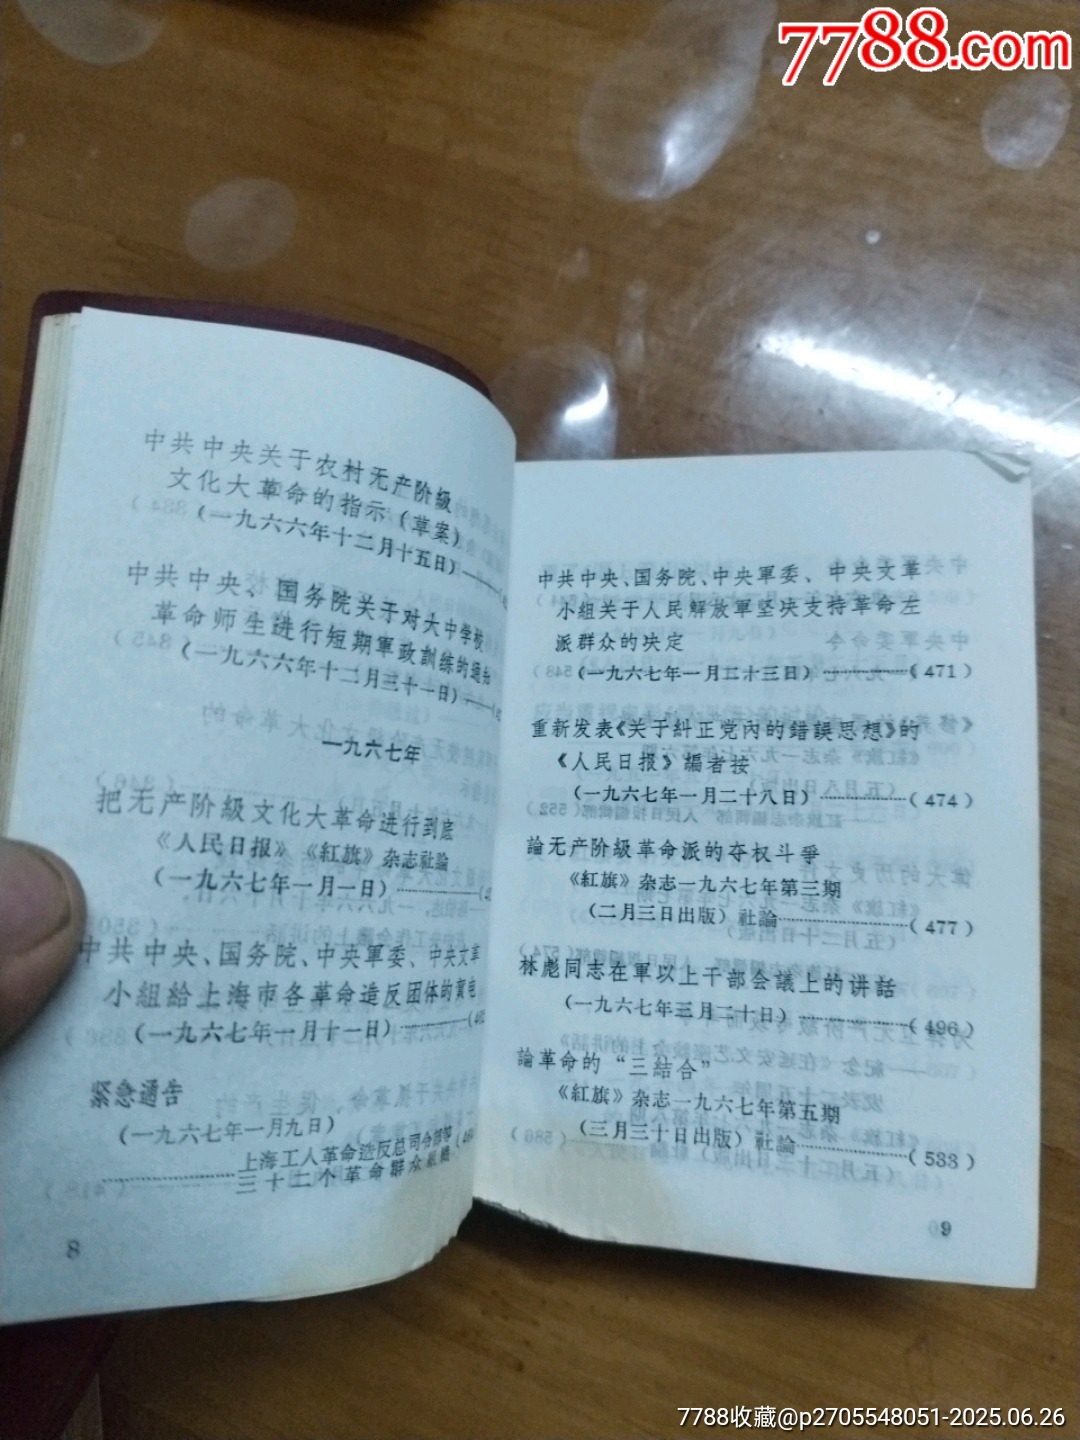 7788.com
中共中央关于农村无产阶級
文化大革命的指示（草案）
（一九六六年十二月十五日）
中共中央、国务院关于对大中学校
革命师生进行短期軍政訓練的通知
（一九六六年十二月三十一日）
一九六七年
把无产阶級文化大革命进行到底
《人民日报》《紅旗》杂志社論
（一九六七年一月一日）
中共中央、国务院、中央軍委、中央文革
小組給上海市各革命造反团体的賀电
（一九六七年一月十一日）
緊急通告
（一九六七年一月九日）
上海工人革命造反总司令部等
三十二个革命群众組織
8
中共中央、国务院、中央軍委、中央文革
小組关于人民解放軍坚决支持革命左
派群众的决定
（一九六七年一月二十三日）（471）
重新发表《关于糾正党內的錯誤思想》的
《人民日报》編者按
（一九六七年一月二十八日）（474）
論无产阶級革命派的夺权斗爭
《紅旗》杂志一九六七年第三期
（二月三日出版）社論（477）
林彪同志在軍以上干部会議上的讲話
（一九六七年三月二十日）（496）
論革命的“三結合”
《紅旗》杂志一九六七年第五期
（三月三十日出版）社論（533）
9
7788收藏@p2705548051-2025.06.26